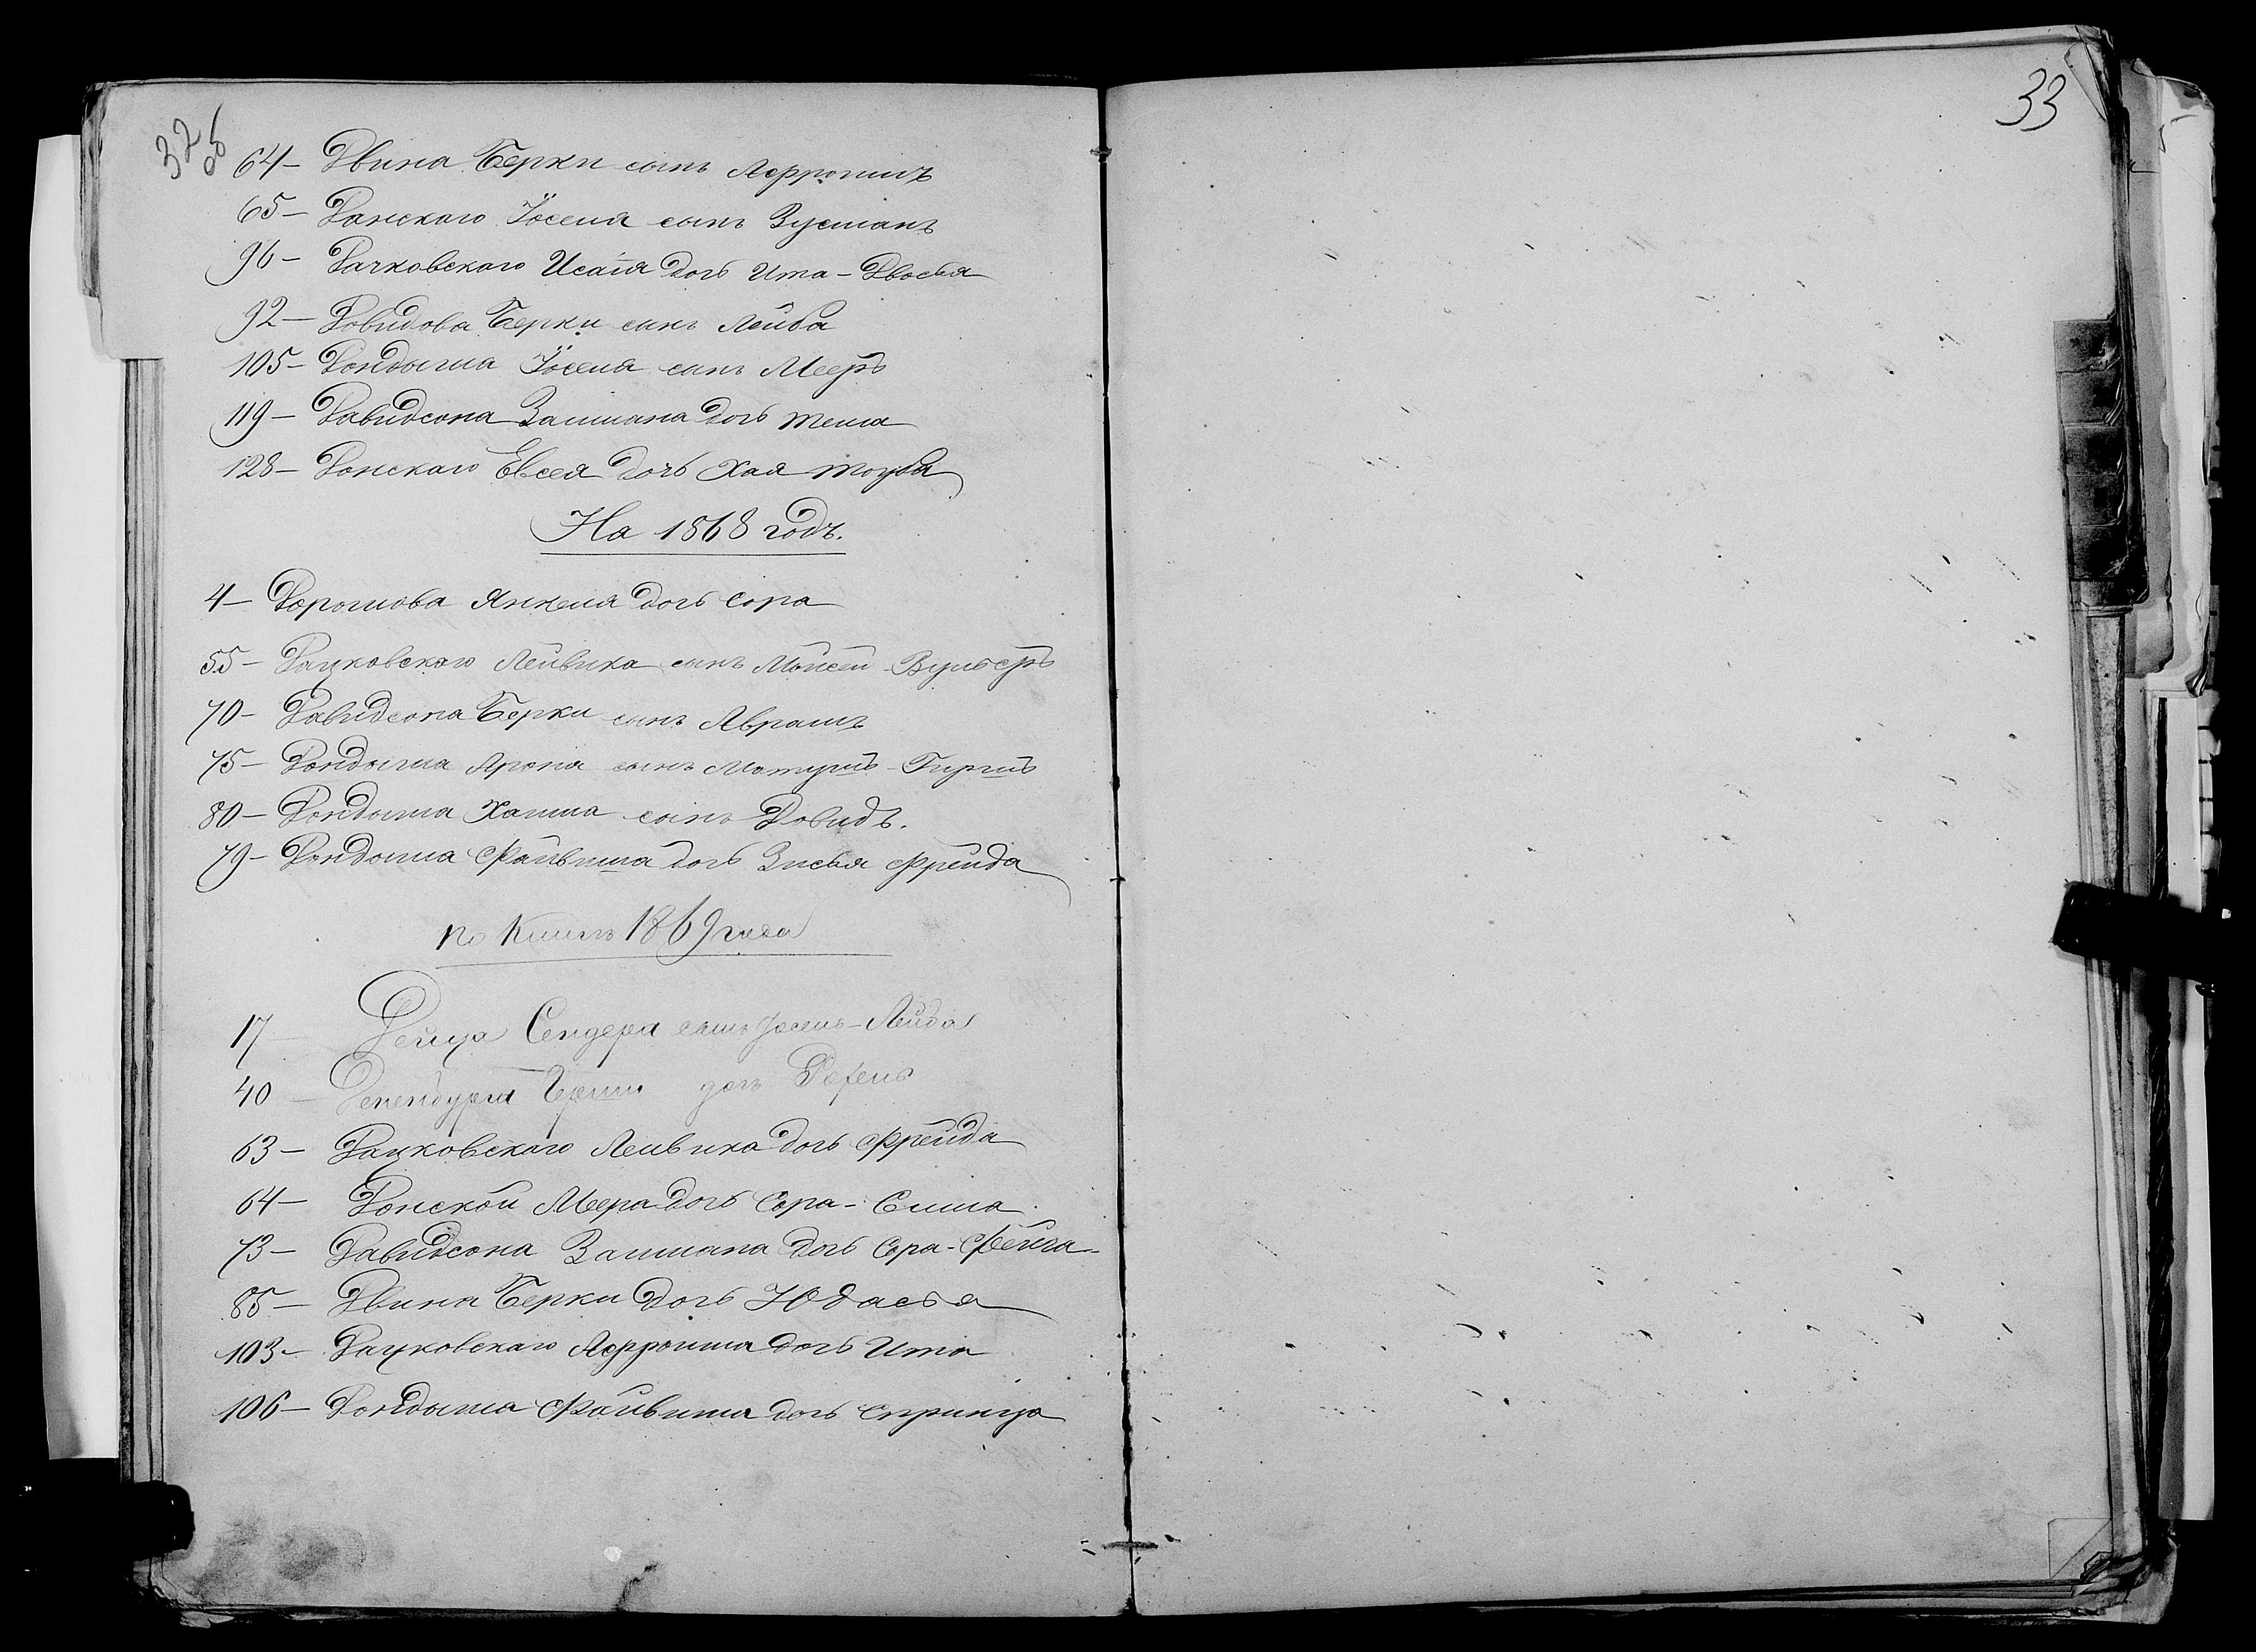 32 об
64 – Двина Берки сынъ Аефроимъ
65 – Данскаго Іоселя сынъ Зусманъ
96 – Дачковскаго Исаія дочь Ита-Двосья
92 – Довидова Берки сынъ Лейба
105 – Дондыша Іоселя сынъ Мееръ
119 – Давидсона Залмана дочь Тема
128 – Донскаго Евсея дочь Хая Тоуба
На 1868 годъ.
4 – Дорошова Янкеля дочь Сора
55 – Дацковскаго Лейвика сынъ Мойсей-Вульфъ
70 – Давидсона Берки сынъ Абрамъ
75 – Дондыша Арона сынъ
80 – Дондыша Хаима сынъ Довидъ.
79 – Дондыша Файвиша дочь Зисья Фрейда
по книгѣ 1869 года
17 – Сендера сынъ Іосель-Лейба
40 – дочь
63 – Дацковскаго Лейвика дочь Фрейда
64 – Донской Меера дочь Сора-Сима
73 – Давидсона Залмана дочь Сора-Фейга
85 – Двина Берки дочь Юдасья
103 – Дацковскаго Аефроима дочь Ита
106 – Дондыша Файвиша дочь Спринца
33